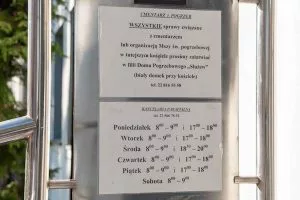 CMENTARZ i POGRZEB
WSZYSTKIE sprawy związane
z cmentarzem
lub organizacją Mszy św. pogrzebowej
w tutejszym kościele prosimy załatwiać
w filii Domu Pogrzebowego „Służew”
(biały domek przy kościele)
tel. 22 816 55 50
KANCELARIA PARAFIALNA
Poniedziałek 8⁰⁰ – 9⁰⁰ i 17⁰⁰ – 18⁰⁰
Wtorek 8⁰⁰ – 9⁰⁰ i 17⁰⁰ – 18⁰⁰
Środa 8⁰⁰ – 9⁰⁰ i 18³⁰ – 20⁰⁰
Czwartek 8⁰⁰ – 9⁰⁰ i 17⁰⁰ – 18⁰⁰
Piątek 8⁰⁰ – 9⁰⁰ i 17⁰⁰ – 18⁰⁰
Sobota 8⁰⁰ – 9⁰⁰